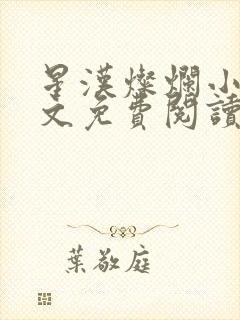 星漢燦爛小
文免費閱讀
葉敬庭